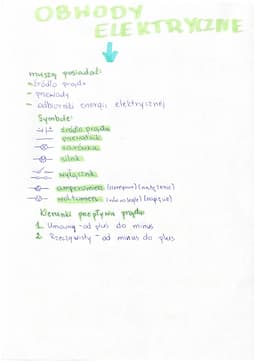 OBWODY
ELEKTRYCZNE
muszą posiadać:
- źródło prądu
- przewody
- odbiorniki energii elektrycznej
Symbole:
źródło prądu
przewodnik
żarówka
silnik
wyłącznik
amperomierz (szeregowo) (natężenie)
woltomierz (równolegle) (napięcie)
Kierunki przepływu prądu:
1. Umowny - od plus do minus
2. Rzeczywisty - od minus do plus